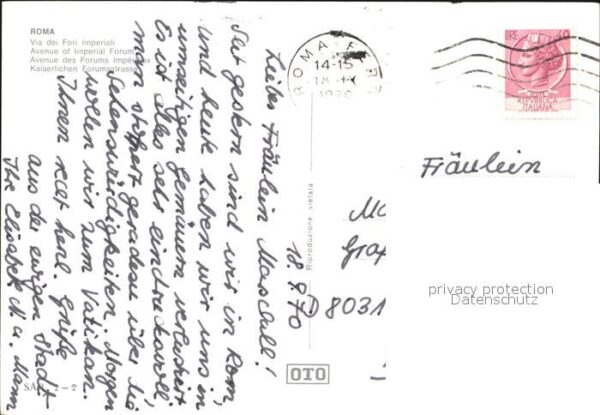 ROMA
Via dei Fori Imperiali
Avenue of Imperial Forum
Avenue des Forums Impériaux
Kaiserlichen Forumsstrasse
18. 9. 70
Liebes Fräulein Maschall!
Seit gestern sind wir in Rom,
und heute haben wir uns in
unzähligen Gemäuern verlustiert.
Es ist alles sehr eindrucksvoll,
man stolpert geradezu über die
Sehenswürdigkeiten. Morgen
wollen wir zum Vatikan.
Ihnen recht herzl. Grüße
aus der ewigen Stadt
Ihre Elisabeth N. u. Mann
SAR. 2 - 2
Riproduzione vietata
OTO
ROMA FERR
14-15
18. IX
1970
LIRE 40
REPUBBLICA
ITALIANA
Fräulein
Ma
Graf
D 8031
privacy protection
Datenschutz